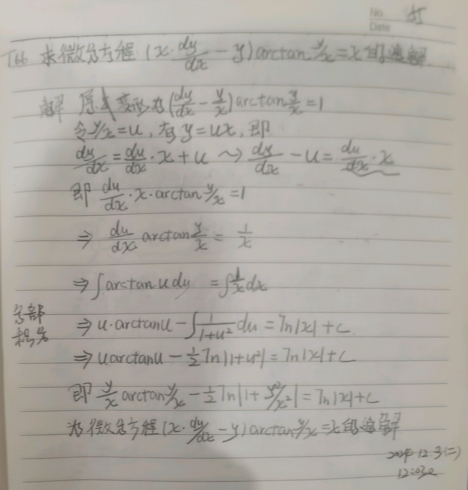 No.
Date
166 求微分方程 (x·dy/dx - y) arctan y/x = x 的通解
解 原式变形为 (dy/dx - y/x) arctan y/x = 1
令 y/x = u, 有 y = ux, 即
dy/dx = du/dx · x + u ~> dy/dx - u = du/dx · x
即 du/dx · x · arctan y/x = 1
⇒ du/dx arctan y/x = 1/x
⇒ ∫ arctan u du = ∫ 1/x dx
分部积分 ⇒ u·arctan u - ∫ 1/(1+u²) du = ln|x| + c
⇒ u arctan u - 1/2 ln|1+u²| = ln|x| + c
即 y/x arctan y/x - 1/2 ln|1 + y²/x²| = ln|x| + c
为微分方程 (x·dy/dx - y) arctan y/x = x 的通解
12.3(二)